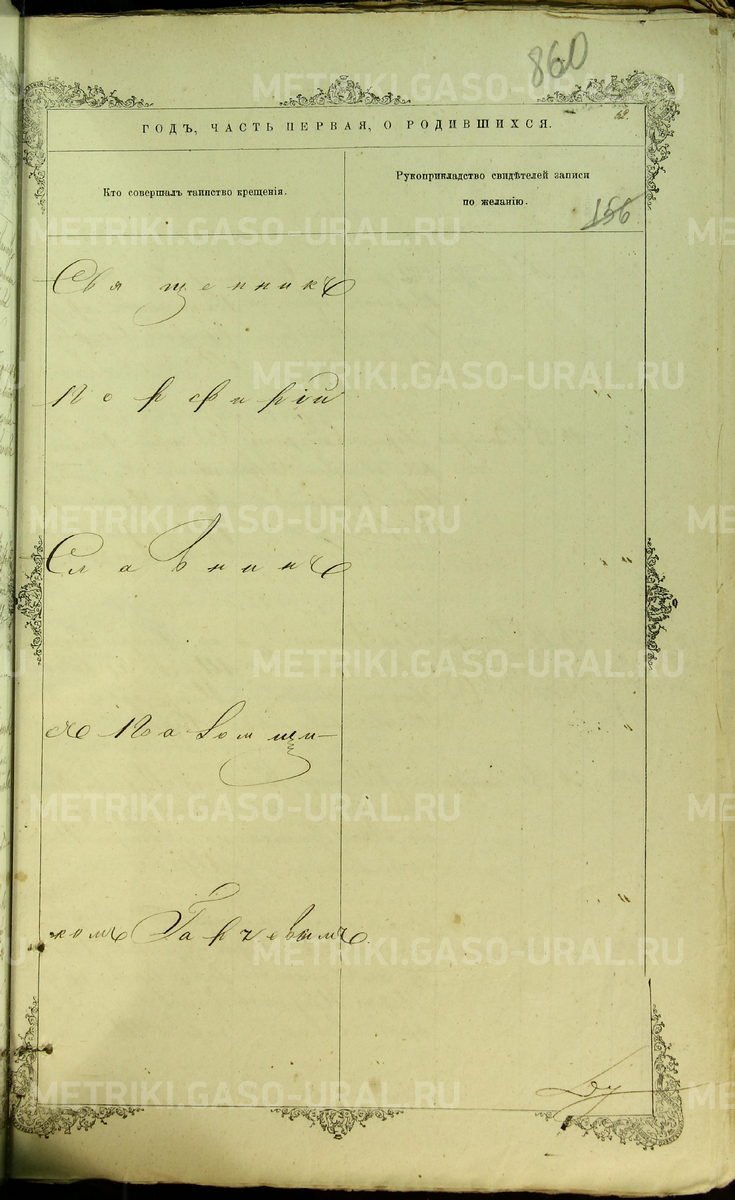 860
ГОДЪ, ЧАСТЬ ПЕРВАЯ, О РОДИВШИХСЯ.
Кто совершалъ таинство крещенія.
Рукоприкладство свидѣтелей записи
по желанію.
156
Священникъ
Порфирій
Славнинъ
съ Псаломщи-
комъ
METRIKI.GASO-URAL.RU